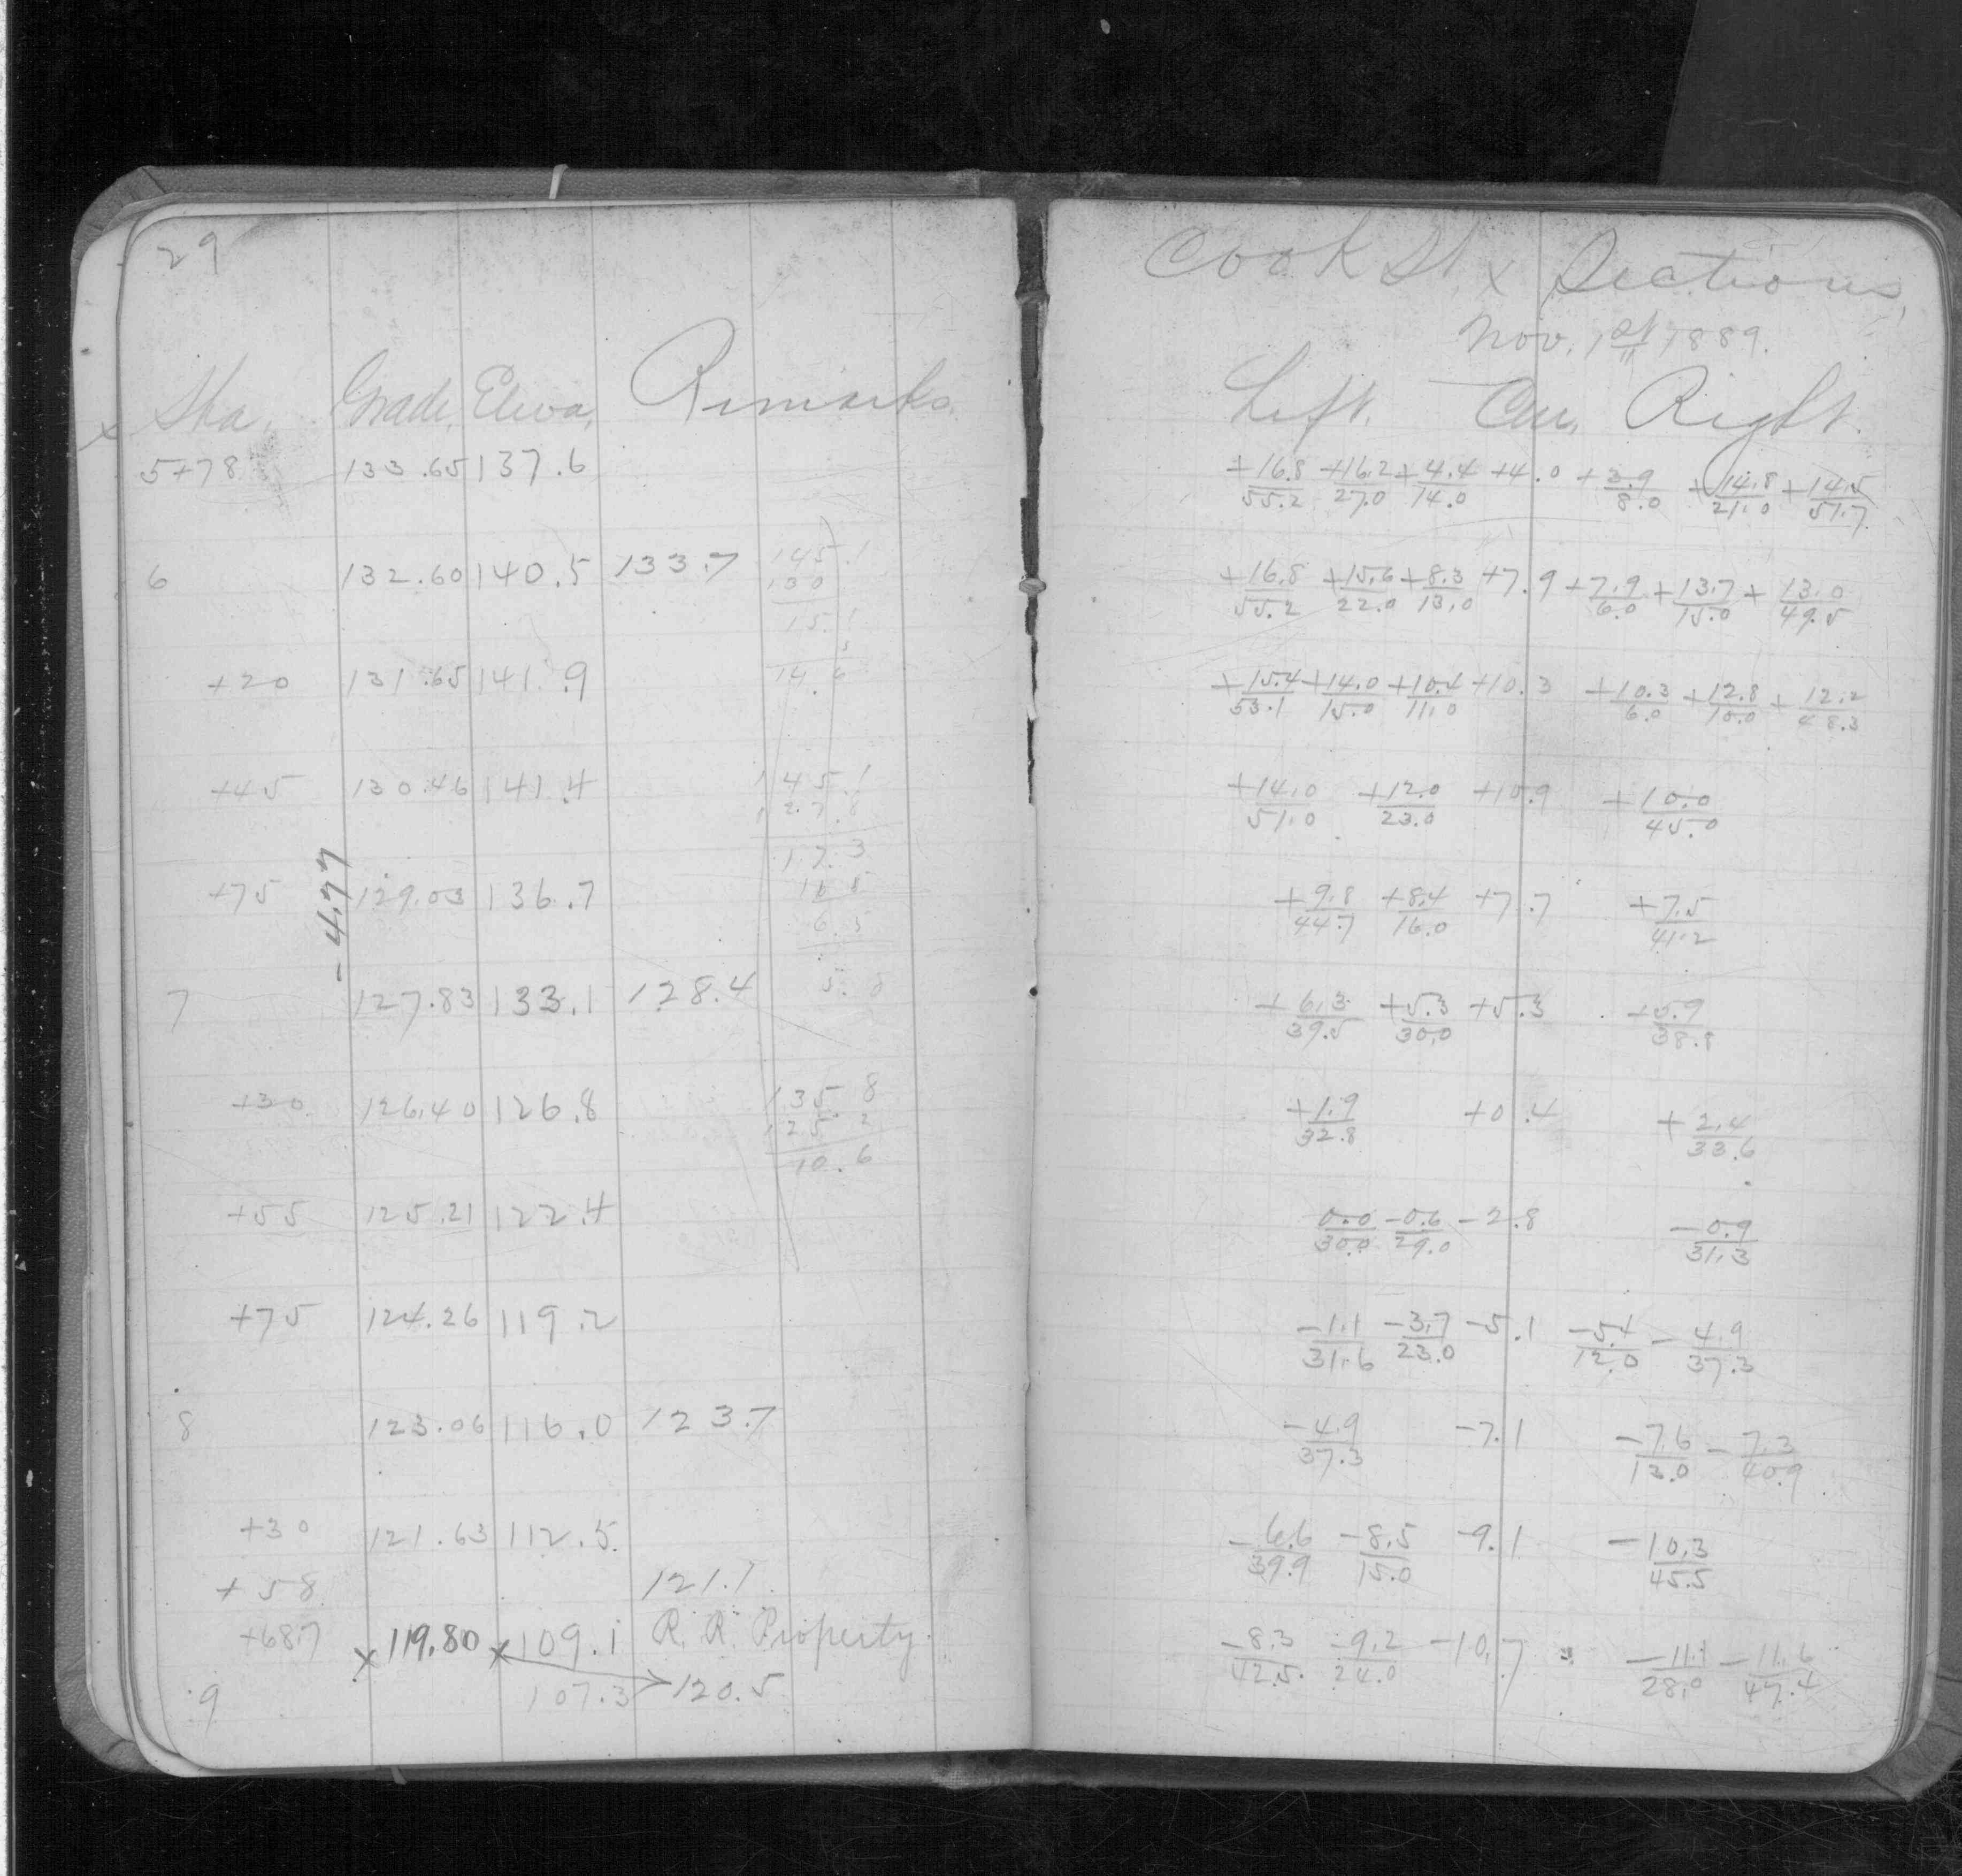 29
Sta. Grade, Eleva, Remarks.
5+78 133.65 137.6
6 132.60 140.5 133.7
145.1
130
15.1
5
14.6
+20 131.65 141.9
+45 130.46 141.4
145.1
127.8
17.3
+75 129.03 136.7
6.5
- 4.77
7 127.83 133.1 128.4
5.8
+30 126.40 126.8
135.8
125.2
10.6
+55 125.21 122.4
+75 124.26 119.2
8 123.06 116.0 123.7
+30 121.63 112.5
+58 121.1
+68.7 x 119.80 x 109.1 R. R. Property.
9 107.3 120.5
Cook St. x Sections,
Nov. 1st 1889.
Left. Cen. Right.
+16.8/55.2 +16.2/27.0 +4.4/14.0 +4.0 +3.9/8.0 +14.8/21.0 +14.5/51.7
+16.8/55.2 +15.6/22.0 +8.3/13.0 +7.9 +7.9/6.0 +13.7/15.0 +13.0/49.5
+15.4/53.1 +14.0/15.0 +10.4/11.0 +10.3 +10.3/6.0 +12.8/10.0 +12.2/48.3
+14.0/51.0 +12.0/23.0 +10.9 +10.0/45.0
+9.8/44.7 +8.4/16.0 +7.7 +7.5/41.2
+6.3/39.5 +5.3/30.0 +5.3 +5.9/38.8
+1.9/32.8 +0.4 +2.4/33.6
0.0/30.0 -0.6/29.0 -2.8 -0.9/31.3
-1.1/31.6 -3.7/23.0 -5.1 -5.4/12.0 -4.9/37.3
-4.9/37.3 -7.1 -7.6/13.0 -7.3/40.9
-6.6/39.9 -8.5/15.0 -9.1 -10.3/45.5
-8.3/42.5 -9.2/24.0 -10.7 -11.1/28.0 -11.6/47.4